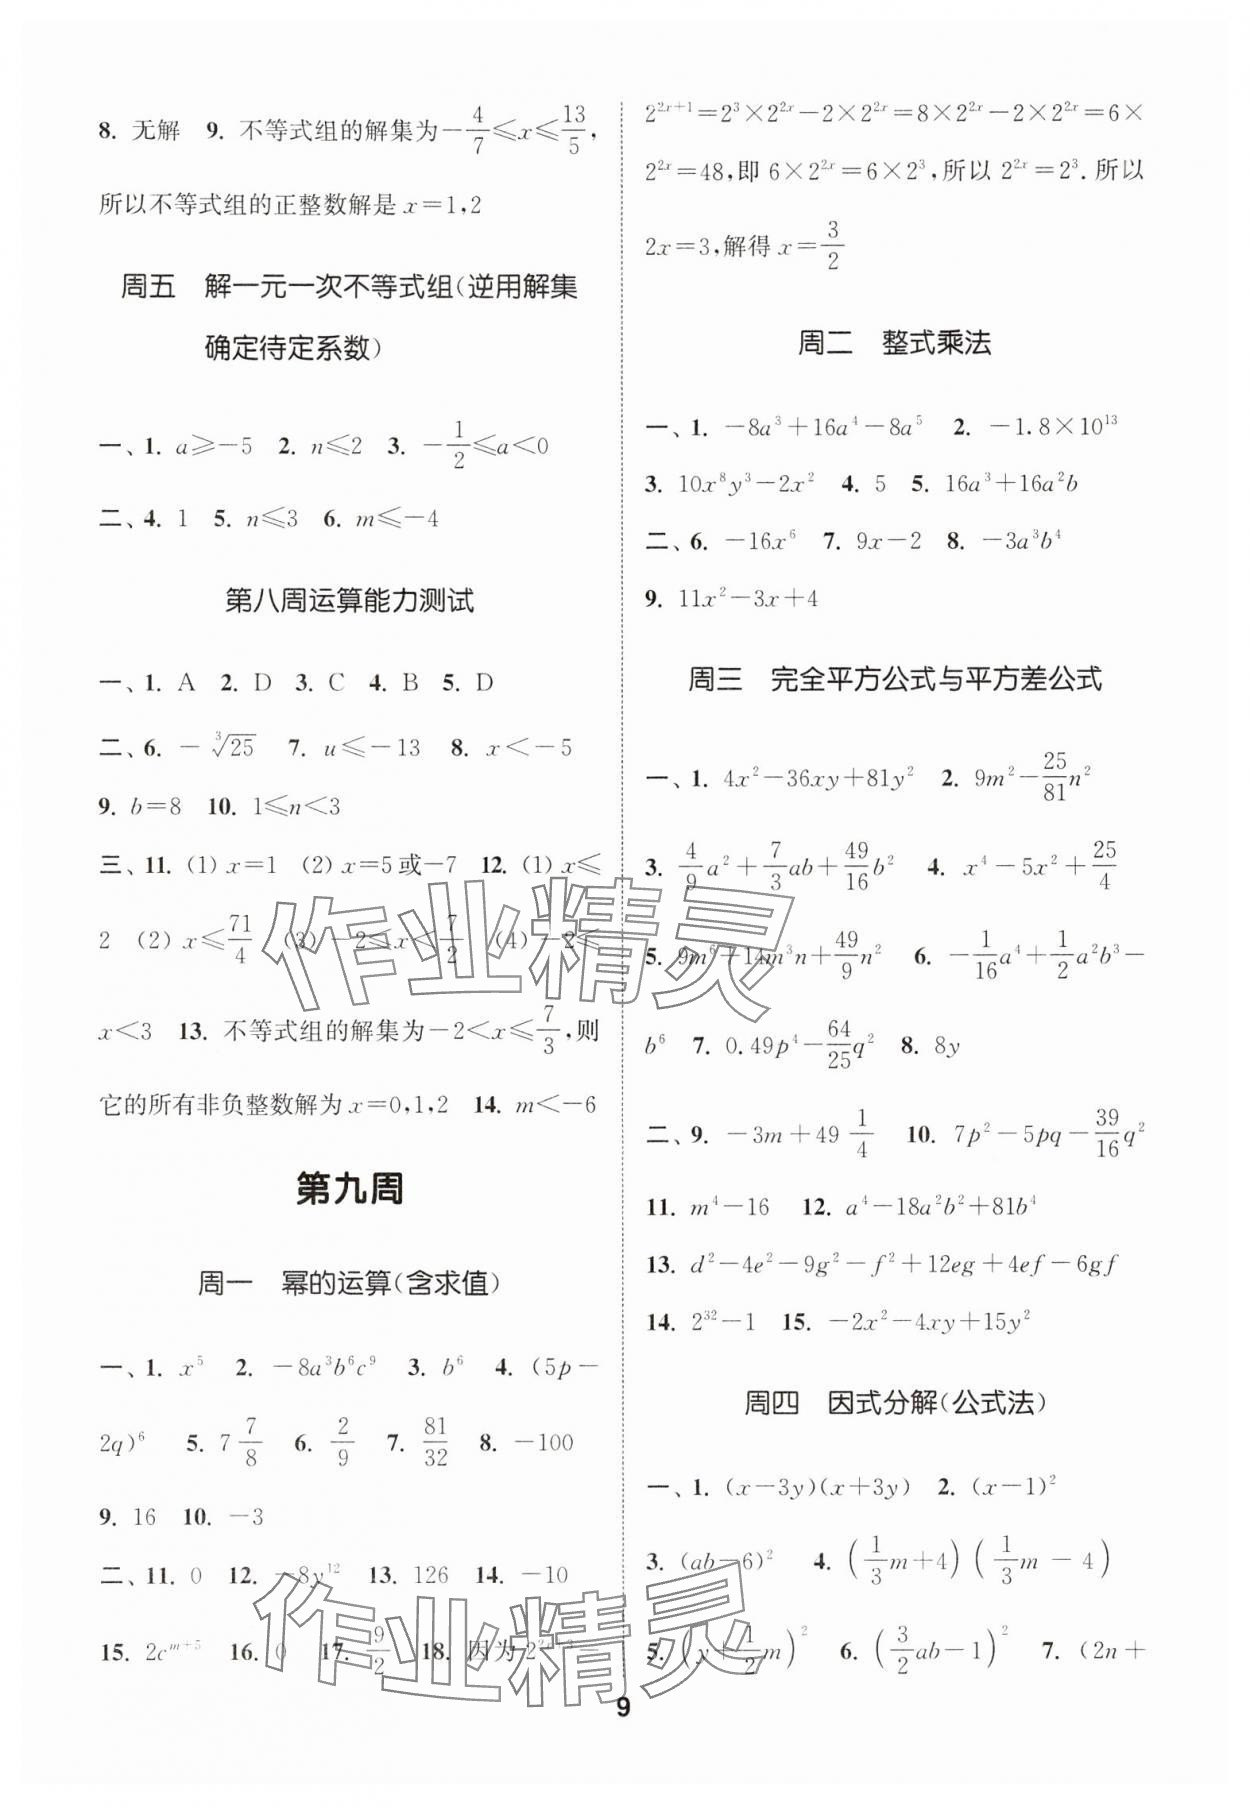 8. 无解 9. 不等式组的解集为-4/7≤x≤13/5,
所以不等式组的正整数解是 x=1,2
周五 解一元一次不等式组(逆用解集
确定待定系数)
一、1. a≥-5 2. n≤2 3. -1/2≤a<0
二、4. 1 5. n≤3 6. m≤-4
第八周运算能力测试
一、1. A 2. D 3. C 4. B 5. D
二、6. -∛25 7. u≤-13 8. x<-5
9. b=8 10. 1≤n<3
三、11. (1) x=1 (2) x=5或-7 12. (1) x≤
2 (2) x≤71/4 (3) -2≤x≤7/2 (4) -2≤
x<3 13. 不等式组的解集为-2<x≤7/3,则
它的所有非负整数解为 x=0,1,2 14. m<-6
第九周
周一 幂的运算(含求值)
一、1. x⁵ 2. -8a³b⁶c⁹ 3. b⁶ 4. (5p-
2q)⁶ 5. 7 7/8 6. 2/9 7. 81/32 8. -100
9. 16 10. -3
二、11. 0 12. -8y¹² 13. 126 14. -10
15. 2cᵐ⁺⁵ 16. 0 17. 9/2 18. 因为 2²ˣ⁺³-
2²ˣ⁺¹=2³×2²ˣ-2×2²ˣ=8×2²ˣ-2×2²ˣ=6×
2²ˣ=48,即 6×2²ˣ=6×2³,所以 2²ˣ=2³.所以
2x=3,解得 x=3/2
周二 整式乘法
一、1. -8a³+16a⁴-8a⁵ 2. -1.8×10¹³
3. 10x⁸y³-2x² 4. 5 5. 16a³+16a²b
二、6. -16x⁶ 7. 9x-2 8. -3a³b⁴
9. 11x²-3x+4
周三 完全平方公式与平方差公式
一、1. 4x²-36xy+81y² 2. 9m²-25/81n²
3. 4/9a²+7/3ab+49/16b² 4. x⁴-5x²+25/4
5. 9m⁶+14m³n+49/9n² 6. -1/16a⁴+1/2a²b³-
b⁶ 7. 0.49p⁴-64/25q² 8. 8y
二、9. -3m+49 1/4 10. 7p²-5pq-39/16q²
11. m⁴-16 12. a⁴-18a²b²+81b⁴
13. d²-4e²-9g²-f²+12eg+4ef-6gf
14. 2³²-1 15. -2x²-4xy+15y²
周四 因式分解(公式法)
一、1. (x-3y)(x+3y) 2. (x-1)²
3. (ab-6)² 4. (1/3m+4)(1/3m-4)
5. (y+1/2m)² 6. (3/2ab-1)² 7. (2n+
9
作业精灵
作业精灵